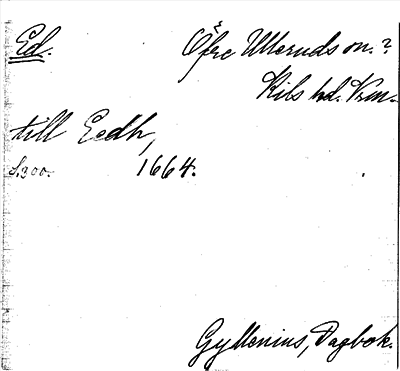 Ed. Öfre Ulleruds sn.?
Kils hd. Vrm.
till Eedh,
s.300. 1664.
Gyllenius, Dagbok.